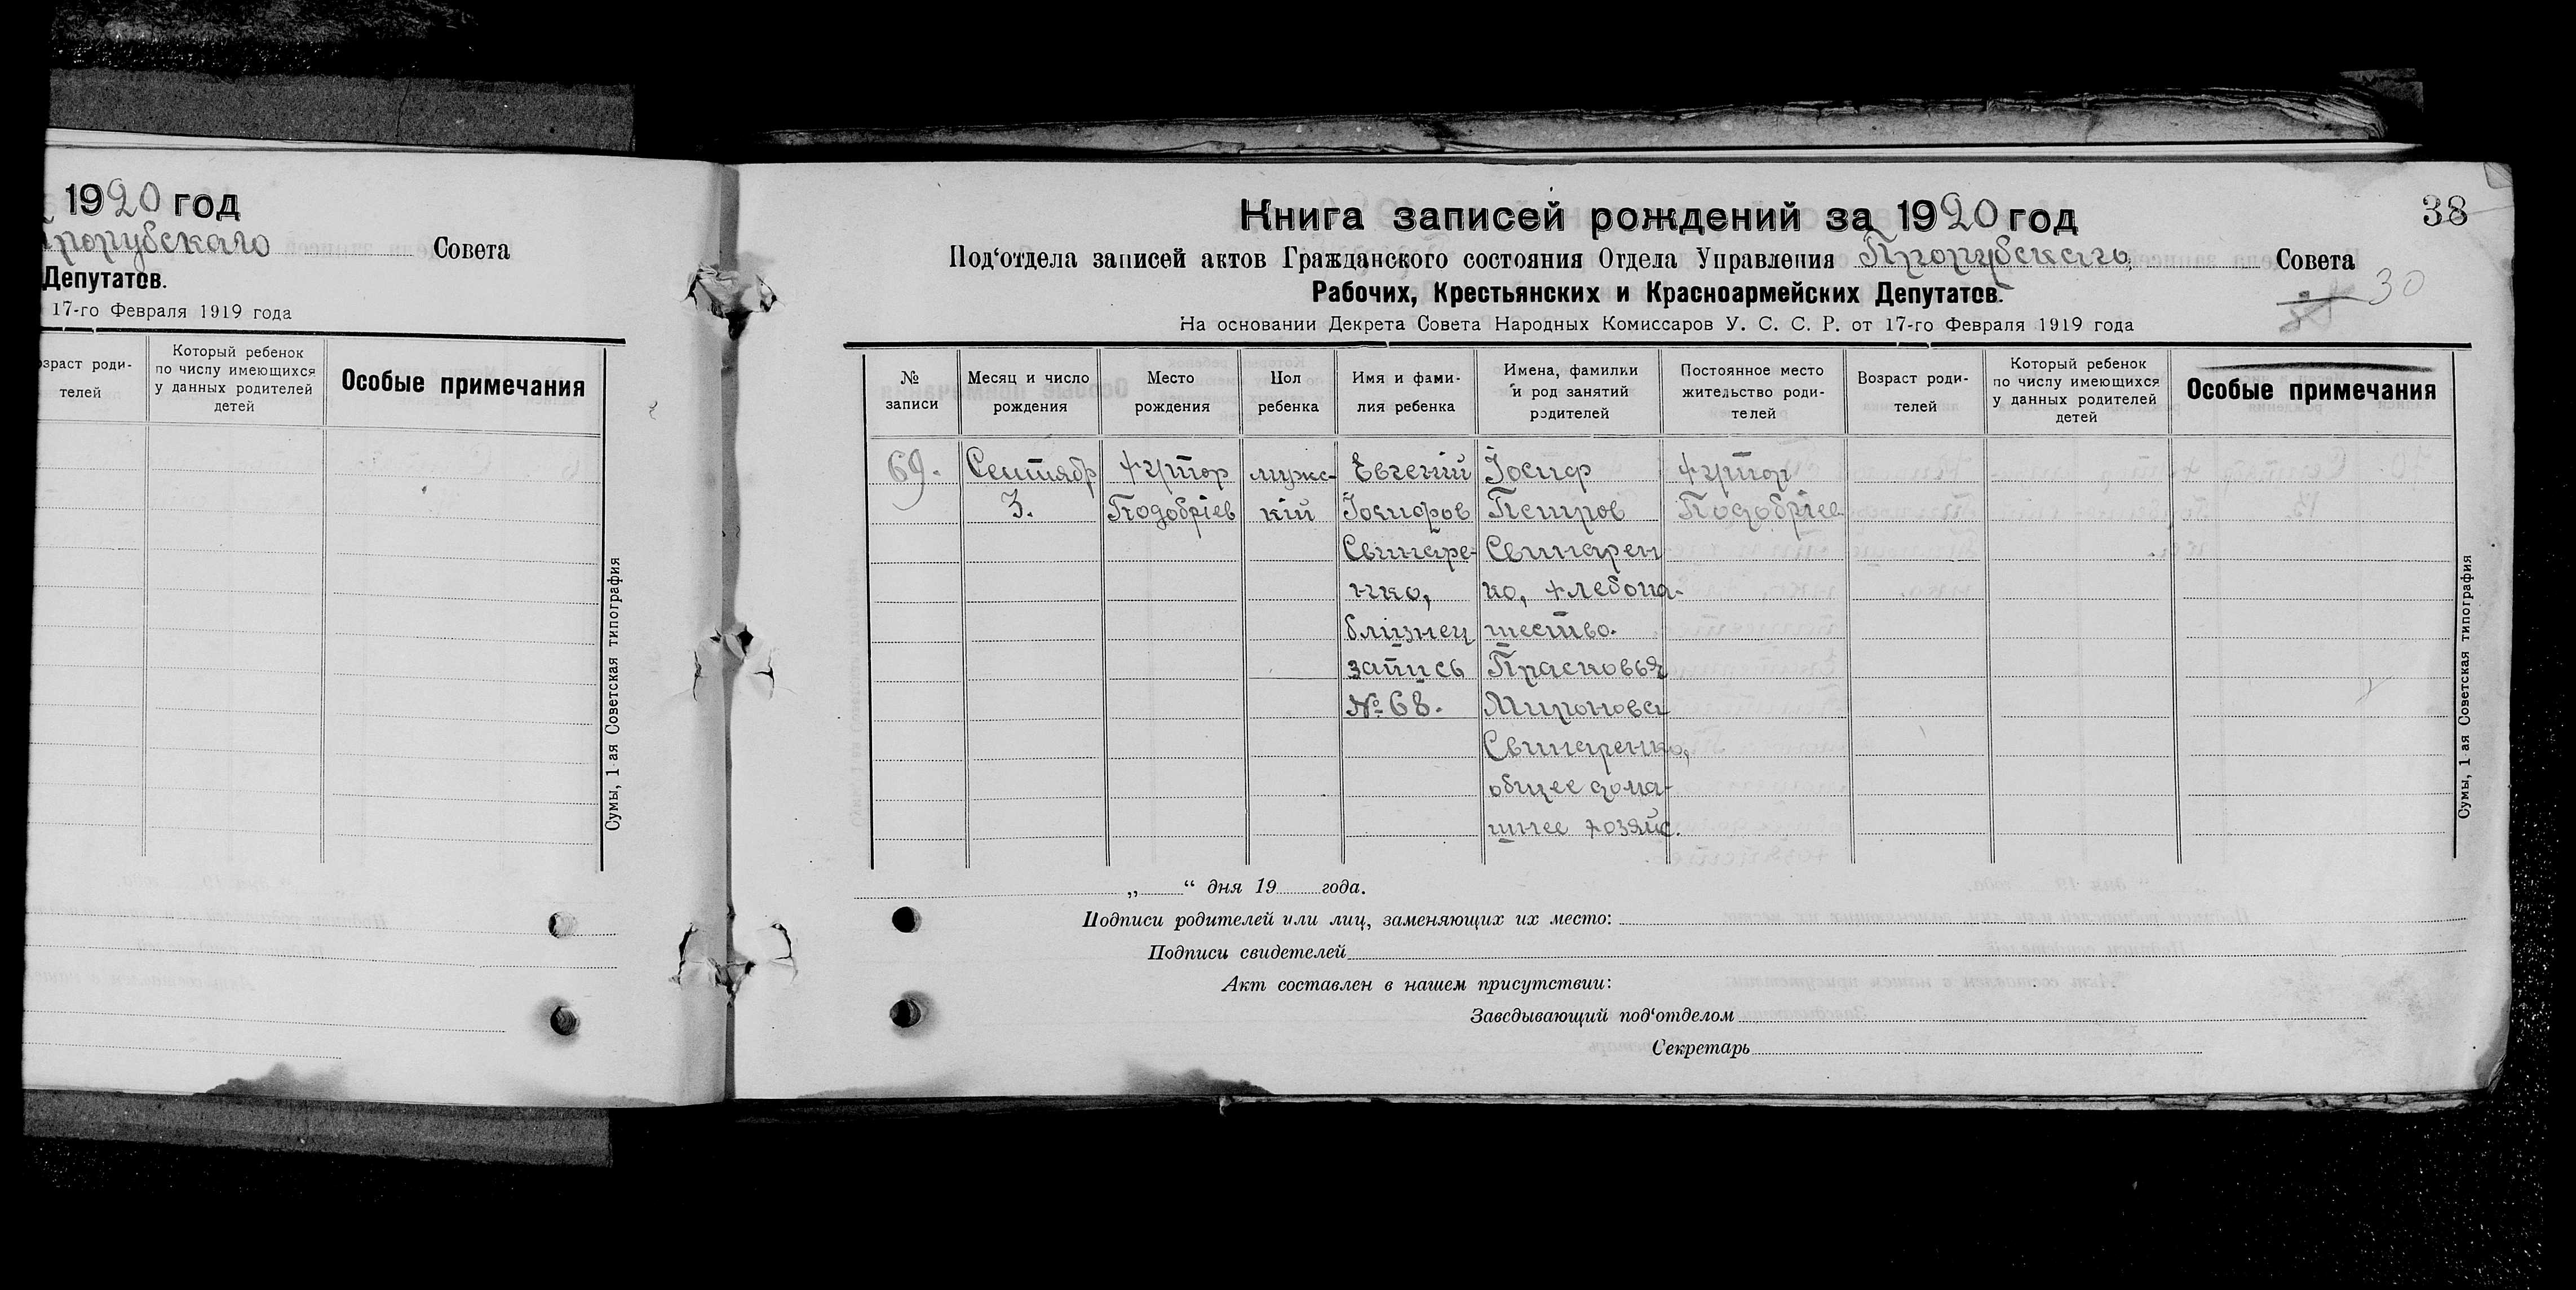 1920 год
Прорубскаго Совета
Депутатов.
17-го Февраля 1919 года
озраст роди-
телей
Который ребенок
по числу имеющихся
у данных родителей
детей
Особые примечания
Сумы, 1-ая Советская типография
38
Книга записей рождений за 1920 год
Под‘отдела записей актов Гражданского состояния Отдела Управления Прорубскаго Совета
30
Рабочих, Крестьянских и Красноармейских Депутатов.
На основании Декрета Совета Народных Комиссаров У. С. С. Р. от 17-го Февраля 1919 года
№
записи
Месяц и число
рождения
Место
рождения
Пол
ребенка
Имя и фами-
лия ребенка
Имена, фамилки
и род занятий
родителей
Постоянное место
жительство роди-
телей
Возраст роди-
телей
Который ребенок
по числу имеющихся
у данных родителей
детей
Особые примечания
69.
Сентябр
3.
хутор
Подобріев
мужс-
кій
Евгеній
Іосифов
Свинаре-
нко,
близнец
запись
№ 68.
Іосиф
Петров
Свинарен
ко, хлебопа-
шество.
Прасковья
Миронова
Свинаренко,
общее дома-
шнее хозяйс.
хутор
Подобріев
Сумы, 1-ая Советская типография
„ “ дня 19 года.
Подписи родителей или лиц, заменяющих их место:
Подписи свидетелей
Акт составлен в нашем присутствии:
Заведывающий под‘отделом
Секретарь